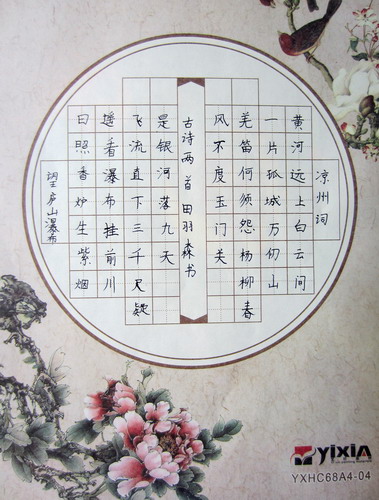 凉州词
黄河远上白云间
一片孤城万仞山
羌笛何须怨杨柳春
风不度玉门关
古诗两首 田羽森书
望庐山瀑布
日照香炉生紫烟
遥看瀑布挂前川
飞流直下三千尺疑
是银河落九天
yixin
YXHC68A4-04